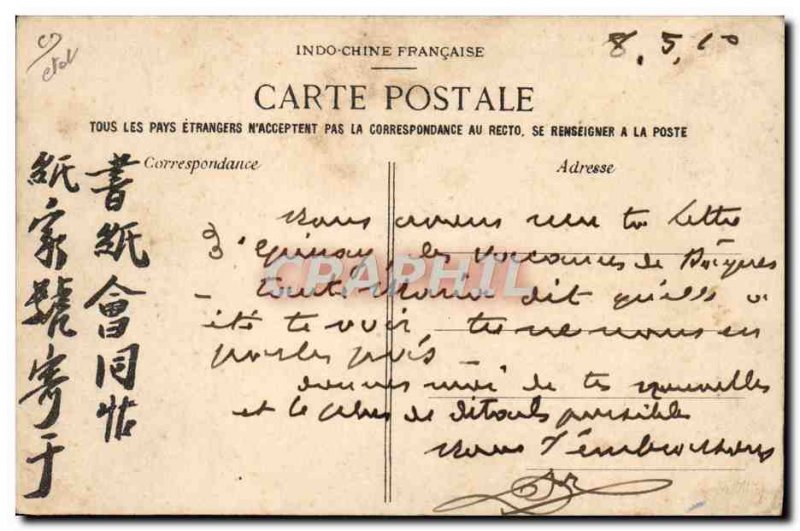 INDO-CHINE FRANÇAISE
8.5.10
CARTE POSTALE
TOUS LES PAYS ÉTRANGERS N'ACCEPTENT PAS LA CORRESPONDANCE AU RECTO, SE RENSEIGNER A LA POSTE
Correspondance
Adresse
書紙會同帖
紙家號寄于
nous avons reçu ta lettre
d'Epinay, les vacances de Pâques
Marie dit qu'elle a
été te voir, tu ne nous en
parles pas
donnes moi de tes nouvelles
et le plus de détails possibles
nous t'embrassons
CPRAPHIL